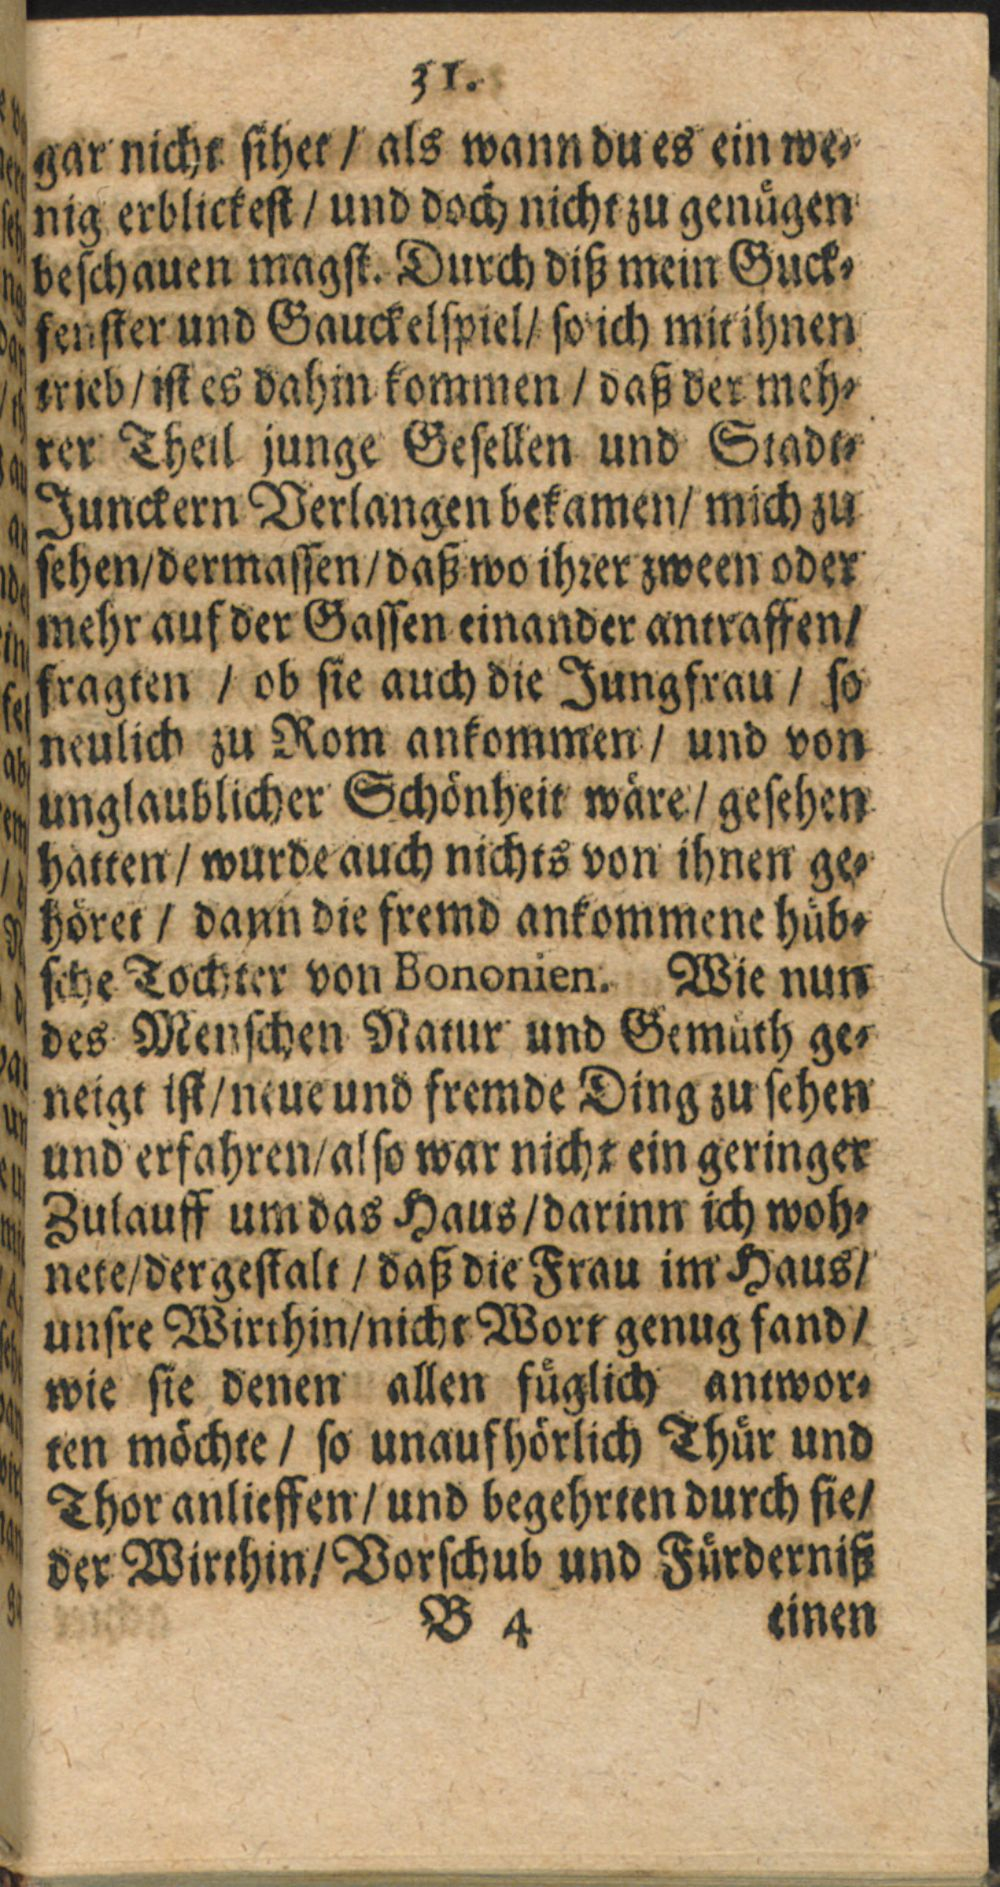 31.
gar nicht sihet / als wann du es ein we-
nig erblickest / und doch nicht zu genügen
beschauen magst. Durch diß mein Guck-
fenster und Gauckelspiel / so ich mit ihnen
trieb / ist es dahin kommen / daß der meh-
rer Theil junge Gesellen und Stadt-
Junckern Verlangen bekamen / mich zu
sehen / dermassen / daß wo ihrer zween oder
mehr auf der Gassen einander antraffen /
fragten / ob sie auch die Jungfrau / so
neulich zu Rom ankommen / und von
unglaublicher Schönheit wäre / gesehen
hatten / wurde auch nichts von ihnen ge-
höret / dann die fremd ankommene hüb-
sche Tochter von Bononien. Wie nun
des Menschen Natur und Gemüth ge-
neigt ist / neue und fremde Ding zu sehen
und erfahren / also war nicht ein geringer
Zulauff um das Haus / darinn ich woh-
nete / dergestalt / daß die Frau im Haus /
unsre Wirthin / nicht Wort genug fand /
wie sie denen allen füglich antwor-
ten möchte / so unaufhörlich Thür und
Thor anlieffen / und begehrten durch sie /
der Wirthin / Vorschub und Fürderniß
B 4 einen